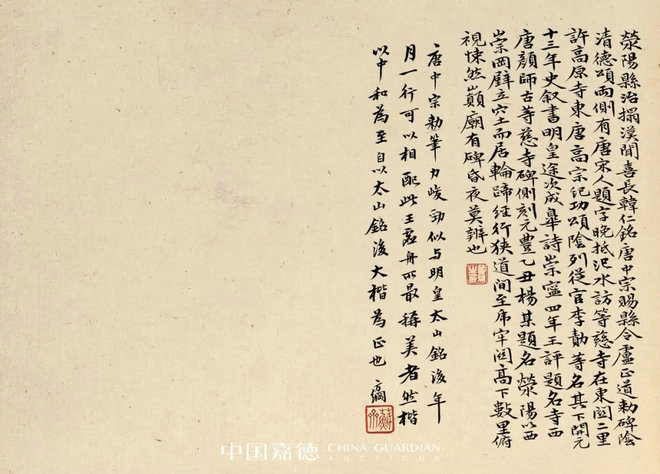 滎陽縣治搨漢聞喜長韓仁銘唐中宗賜縣令盧正道勅碑陰
清德頌兩側有唐宋人題字晚抵汜水訪等慈寺在東關二里
許高原寺東唐高宗紀功頌陰列從官李勣等名其下開元
十三年史敘書明皇途次成皋詩崇寧四年王評題名寺西
唐顏師古等慈寺碑側刻元豐乙丑楊某題名滎陽以西
崇岡壁立穴土而居輪蹄經行狹道間至虎牢關高下數里俯
視悚然巔廟有碑昏夜莫辨也
唐中宗勅筆力峻勁似与明皇太山銘後年
月一行可以相配此王虛舟所最稱美者然楷
以中和為至自以太山銘後大楷為正也
中国嘉德 CHINA GUARDIAN
AUCTIONS